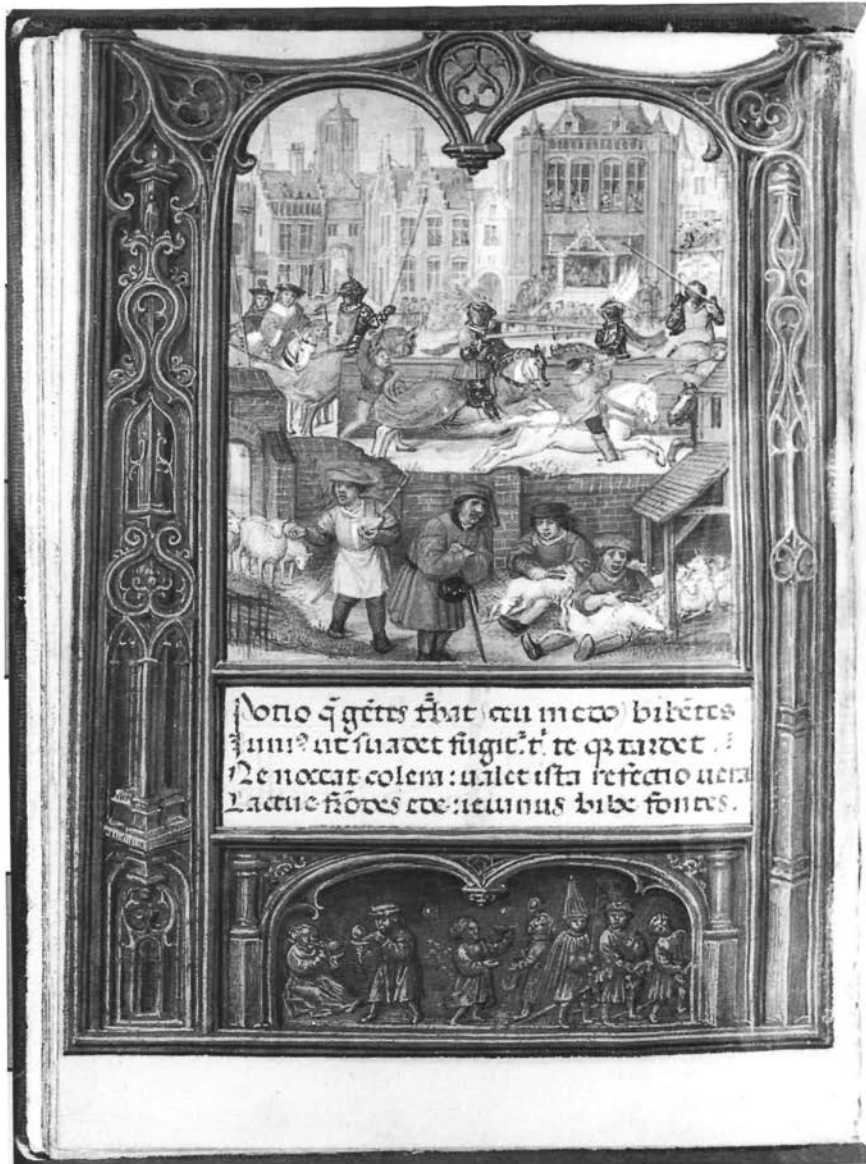 Potio q̄ gētes t̄bat ceu medo bibētes
Juniꝰ ut suadet fugitᷣ tᷣ te qꝫ tardet.
Ne noceat colera: ualet ista refectio uera
Lactuc frōdes ede: ieiunus bibe fontes.